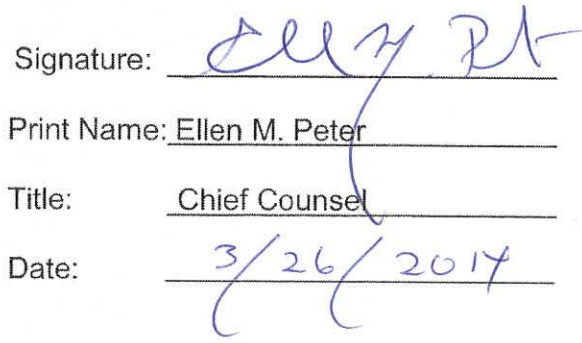 Signature: Ellen M. Peter
Print Name: Ellen M. Peter
Title: Chief Counsel
Date: 3/26/2014